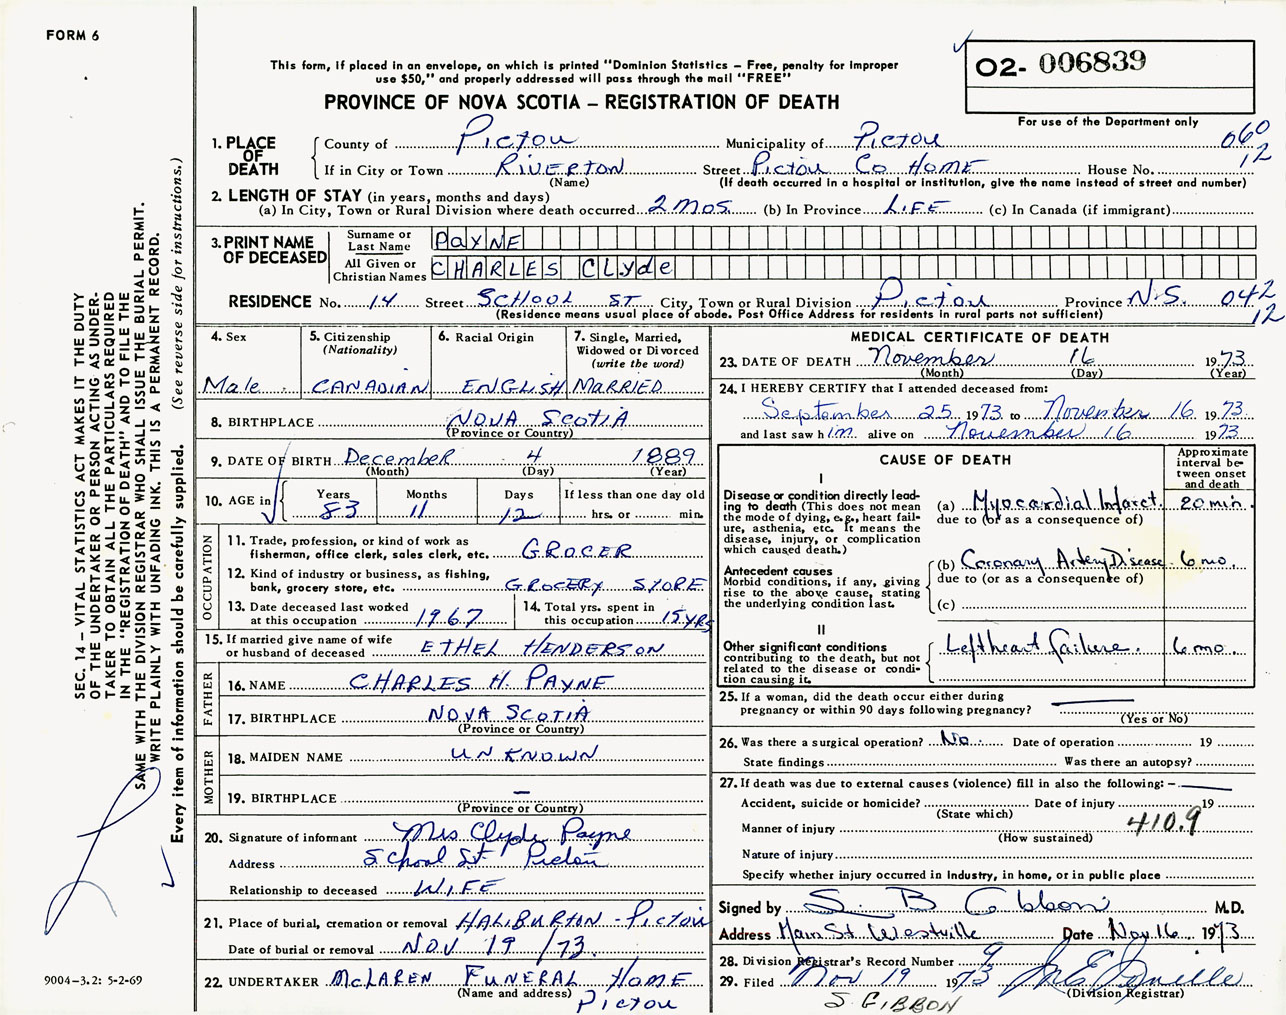 FORM 6
This form, if placed in an envelope, on which is printed "Dominion Statistics – Free, penalty for improper
use $50," and properly addressed will pass through the mail "FREE"
PROVINCE OF NOVA SCOTIA – REGISTRATION OF DEATH
O2- 006839
For use of the Department only
1. PLACE OF DEATH
County of Pictou Municipality of Pictou 060
If in City or Town RIVERTON Street Pictou Co HOME House No. 12
(Name) (If death occurred in a hospital or institution, give the name instead of street and number)
2. LENGTH OF STAY (in years, months and days)
(a) In City, Town or Rural Division where death occurred 2 MOS. (b) In Province LIFE (c) In Canada (if immigrant)
3. PRINT NAME OF DECEASED
Surname or Last Name PAYNE
All Given or Christian Names CHARLES Clyde
RESIDENCE No. 14 Street SCHOOL ST City, Town or Rural Division Pictou Province N.S. 042
(Residence means usual place of abode. Post Office Address for residents in rural parts not sufficient) 12
4. Sex
Male
5. Citizenship
(Nationality)
CANADIAN
6. Racial Origin
ENGLISH
7. Single, Married,
Widowed or Divorced
(write the word)
MARRIED
8. BIRTHPLACE NOVA SCOTIA
(Province or Country)
9. DATE OF BIRTH December 4 1889
(Month) (Day) (Year)
10. AGE in
Years Months Days If less than one day old
83 11 12 hrs. or min.
OCCUPATION
11. Trade, profession, or kind of work as
fisherman, office clerk, sales clerk, etc. GROCER
12. Kind of industry or business, as fishing,
bank, grocery store, etc. GROCERY STORE
13. Date deceased last worked
at this occupation 1967
14. Total yrs. spent in
this occupation 15 YRS
15. If married give name of wife
or husband of deceased ETHEL HENDERSON
FATHER
16. NAME CHARLES H. PAYNE
17. BIRTHPLACE NOVA SCOTIA
(Province or Country)
MOTHER
18. MAIDEN NAME UNKNOWN
19. BIRTHPLACE –
(Province or Country)
20. Signature of informant Mrs Clyde Payne
Address School St Pictou
Relationship to deceased WIFE
21. Place of burial, cremation or removal HALIBURTON - PICTOU
Date of burial or removal NOV 19 /73
22. UNDERTAKER McLAREN FUNERAL HOME
(Name and address) Pictou
MEDICAL CERTIFICATE OF DEATH
23. DATE OF DEATH November 16 1973
(Month) (Day) (Year)
24. I HEREBY CERTIFY that I attended deceased from:
September 25 1973 to November 16 1973
and last saw him alive on November 16 1973
CAUSE OF DEATH
Approximate
interval be-
tween onset
and death
I
Disease or condition directly lead-
ing to death (This does not
mean the mode of dying, e.g., heart fail-
ure, asthenia, etc. It means the
disease, injury, or complication
which caused death.)
(a) Myocardial Infarct. 20 min.
due to (or as a consequence of)
Antecedent causes
Morbid conditions, if any, giving
rise to the above cause, stating
the underlying condition last.
(b) Coronary Artery Disease 6 mo.
due to (or as a consequence of)
(c)
II
Other significant conditions
contributing to the death, but not
related to the disease or condi-
tion causing it.
Left heart failure. 6 mo.
25. If a woman, did the death occur either during
pregnancy or within 90 days following pregnancy?
(Yes or No)
26. Was there a surgical operation? No. Date of operation 19
State findings Was there an autopsy?
27. If death was due to external causes (violence) fill in also the following: –
Accident, suicide or homicide? Date of injury 19
(State which)
Manner of injury 410.9
(How sustained)
Nature of injury
Specify whether injury occurred in industry, in home, or in public place
Signed by S. B Gibbon M.D.
Address Main St. Westville Date Nov 16 1973
28. Division Registrar's Record Number 9
29. Filed Nov 19 1973
(Division Registrar)
S GIBBON
SEC. 14 – VITAL STATISTICS ACT MAKES IT THE DUTY
OF THE UNDERTAKER OR PERSON ACTING AS UNDER-
TAKER TO OBTAIN ALL THE PARTICULARS REQUIRED
IN THE "REGISTRATION OF DEATH" AND TO FILE THE
SAME WITH THE DIVISION REGISTRAR WHO SHALL ISSUE THE BURIAL PERMIT.
WRITE PLAINLY WITH UNFADING INK. THIS IS A PERMANENT RECORD.
Every item of information should be carefully supplied. (See reverse side for instructions.)
9004-3.2: 5-2-69